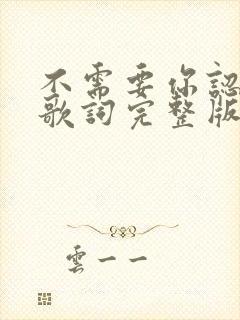 不需要你認
歌詞完整版
雲一一